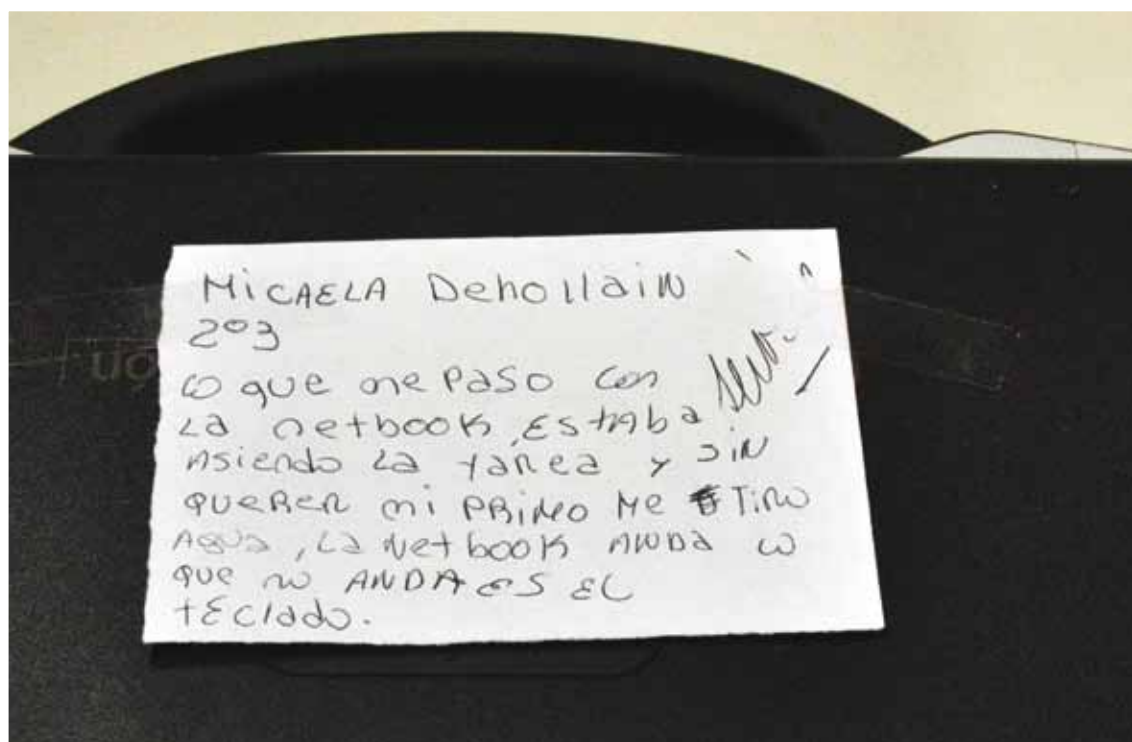 MiCAELA Dehollain
203
lo que me PASO con
LA netbook, EStABa
Asiendo La tarea y sin
queRer mi PRiMo Me Tiro
Agua, La Netbook ANDa lo
que no ANDA ES EL
tEclado.